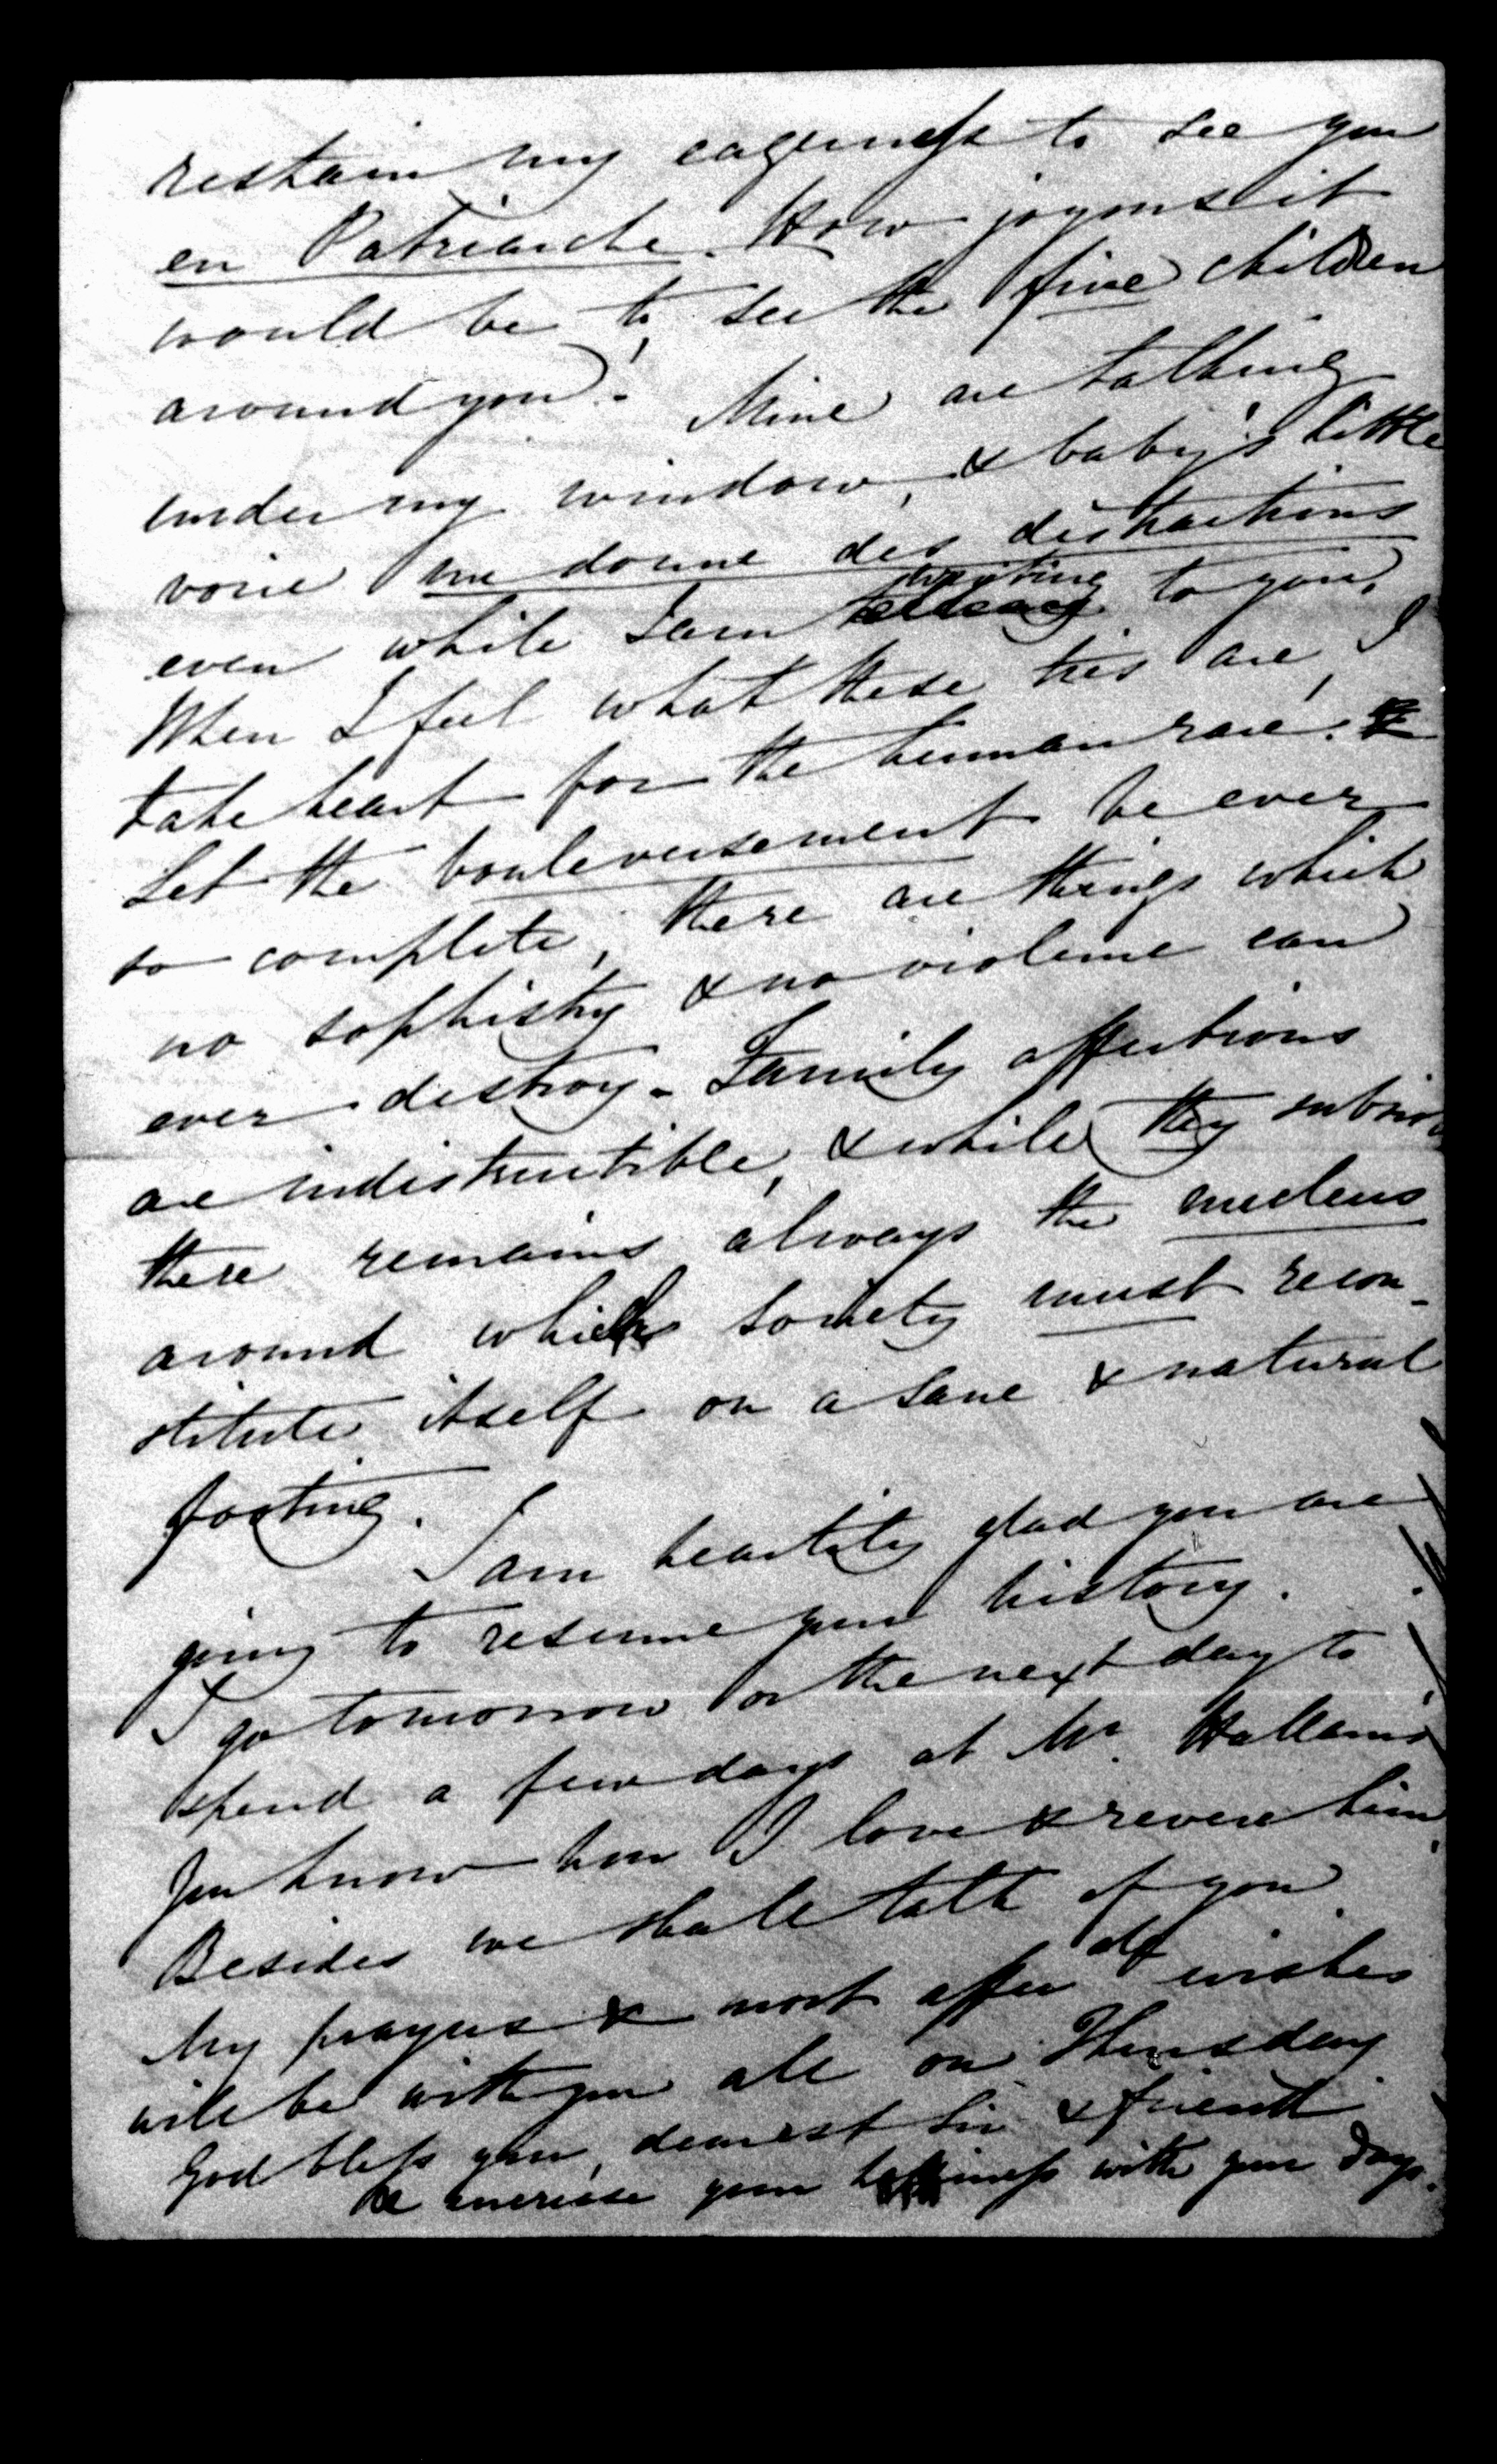 restrain my eagerness to see you
en Patriarche. How joyous it
would be to see the five children
around you! Mine are talking
under my window, & baby's little
voice me donne des distractions
even while I am writing to you.
When I feel what these ties are, I
take heart for the human race.
Let the bouleversement be ever
so complete, there are things which
no sophistry & no violence can
ever destroy. Family affections
are indestructible, & while they subsist
there remains always the nucleus
around which society must recon-
stitute itself on a sane & natural
footing.
I am heartily glad you are
going to resume your history.
I go tomorrow or the next day to
spend a few days at Mr. Hallam's
You know how I love & revere him.
Besides we shall talk of you
My prayers & most affecate wishes
will be with you all on Thursday
God bless you, dearest Sir & friend
& increase your happiness with your days.